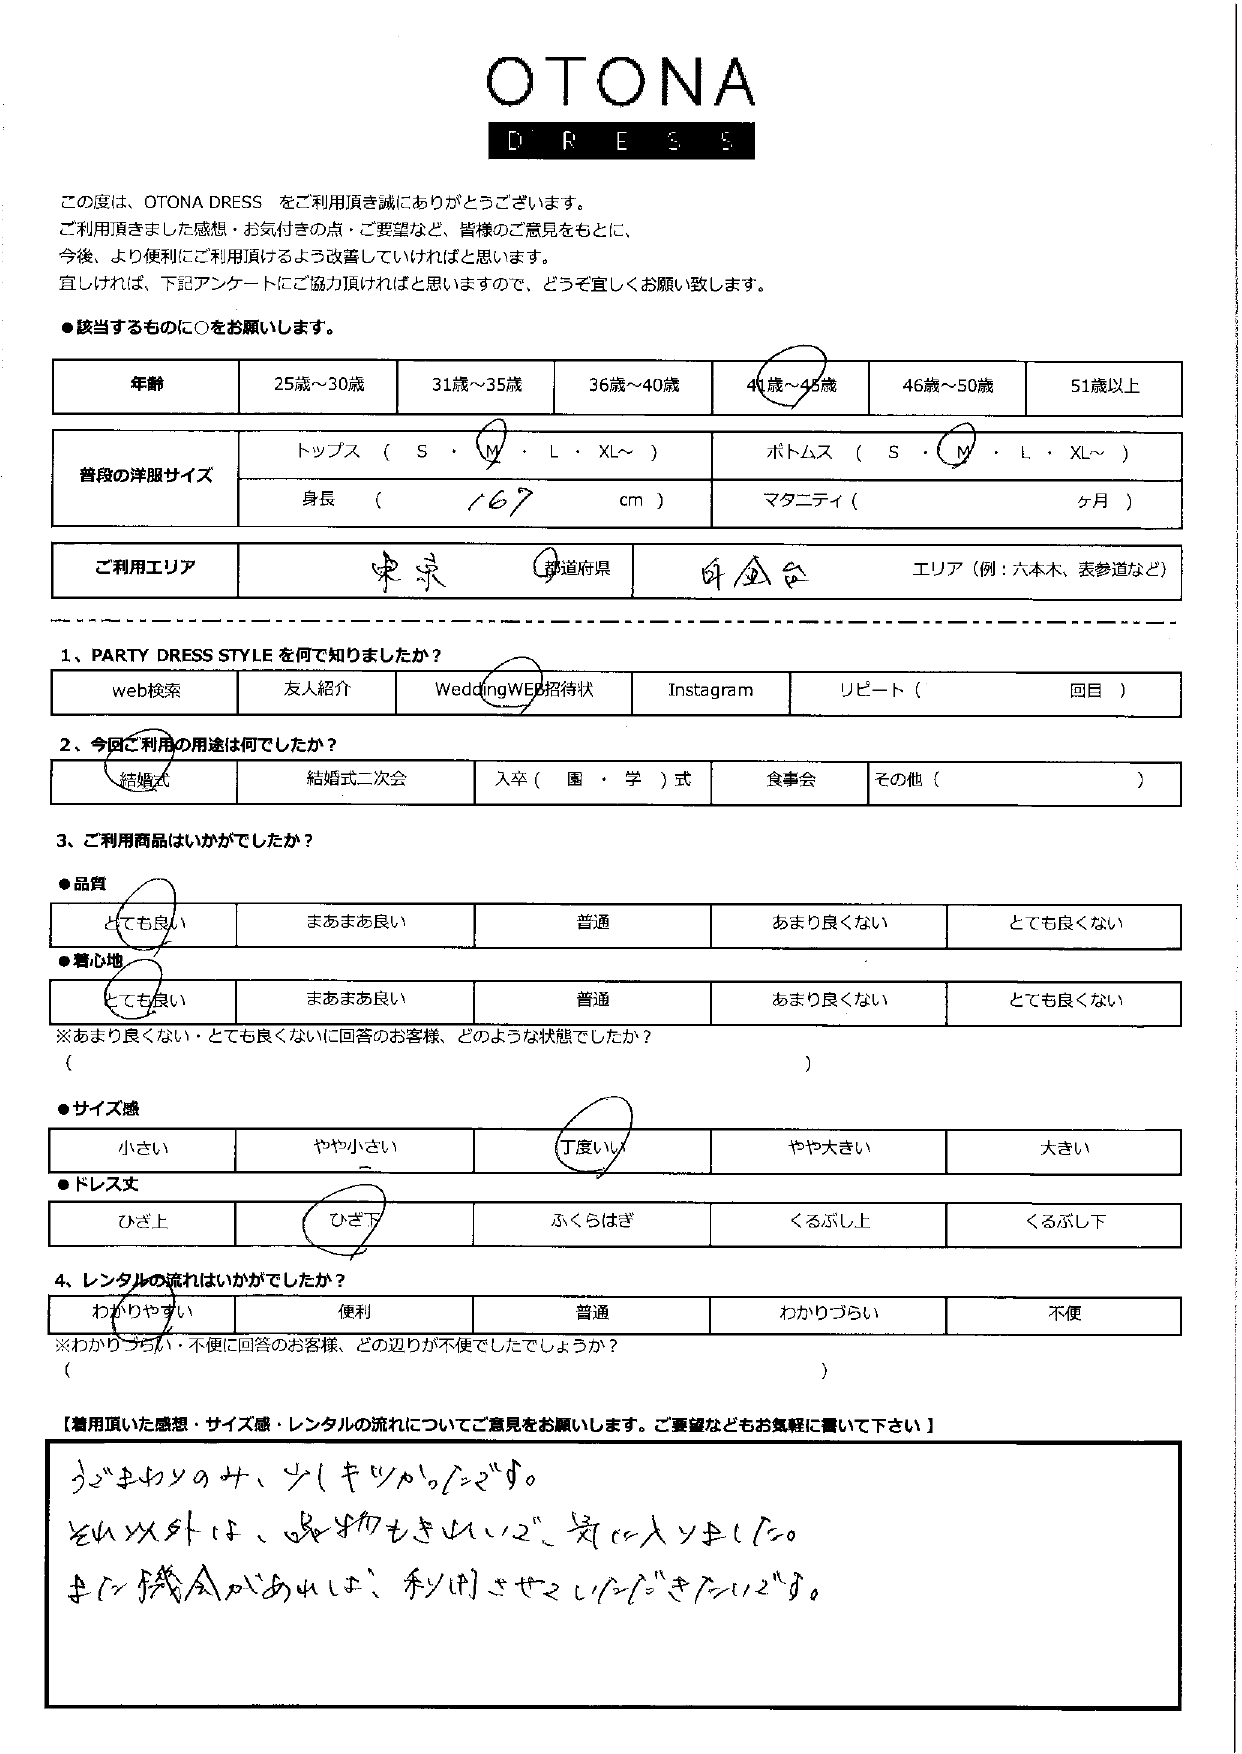 OTONA
DRESS
この度は、OTONA DRESS をご利用頂き誠にありがとうございます。
ご利用頂きました感想・お気付きの点・ご要望など、皆様のご意見をもとに、
今後、より便利にご利用頂けるよう改善していければと思います。
宜しければ、下記アンケートにご協力頂ければと思いますので、どうぞ宜しくお願い致します。
●該当するものに○をお願いします。
年齢 25歳～30歳 31歳～35歳 36歳～40歳 41歳～45歳 46歳～50歳 51歳以上
普段の洋服サイズ トップス ( S ・ M ・ L ・ XL～ ) ボトムス ( S ・ M ・ L ・ XL～ )
身長 ( 167 cm ) マタニティ ( ヶ月 )
ご利用エリア 東京 都道府県 白金台 エリア（例：六本木、表参道など）
1、PARTY DRESS STYLE を何で知りましたか？
web検索 友人紹介 WeddingWEB招待状 Instagram リピート ( 回目 )
2、今回ご利用の用途は何でしたか？
結婚式 結婚式二次会 入卒 ( 園 ・ 学 ) 式 食事会 その他 ( )
3、ご利用商品はいかがでしたか？
●品質
とても良い まあまあ良い 普通 あまり良くない とても良くない
●着心地
とても良い まあまあ良い 普通 あまり良くない とても良くない
※あまり良くない・とても良くないに回答のお客様、どのような状態でしたか？
( )
●サイズ感
小さい やや小さい 丁度いい やや大きい 大きい
●ドレス丈
ひざ上 ひざ下 ふくらはぎ くるぶし上 くるぶし下
4、レンタルの流れはいかがでしたか？
わかりやすい 便利 普通 わかりづらい 不便
※わかりづらい・不便に回答のお客様、どの辺りが不便でしたでしょうか？
( )
【着用頂いた感想・サイズ感・レンタルの流れについてご意見をお願いします。ご要望などもお気軽に書いて下さい 】
うでまわりのみ、少しキツかったです。
それ以外は、品物もきれいで、気に入りました。
また機会があれば、利用させていただきたいです。